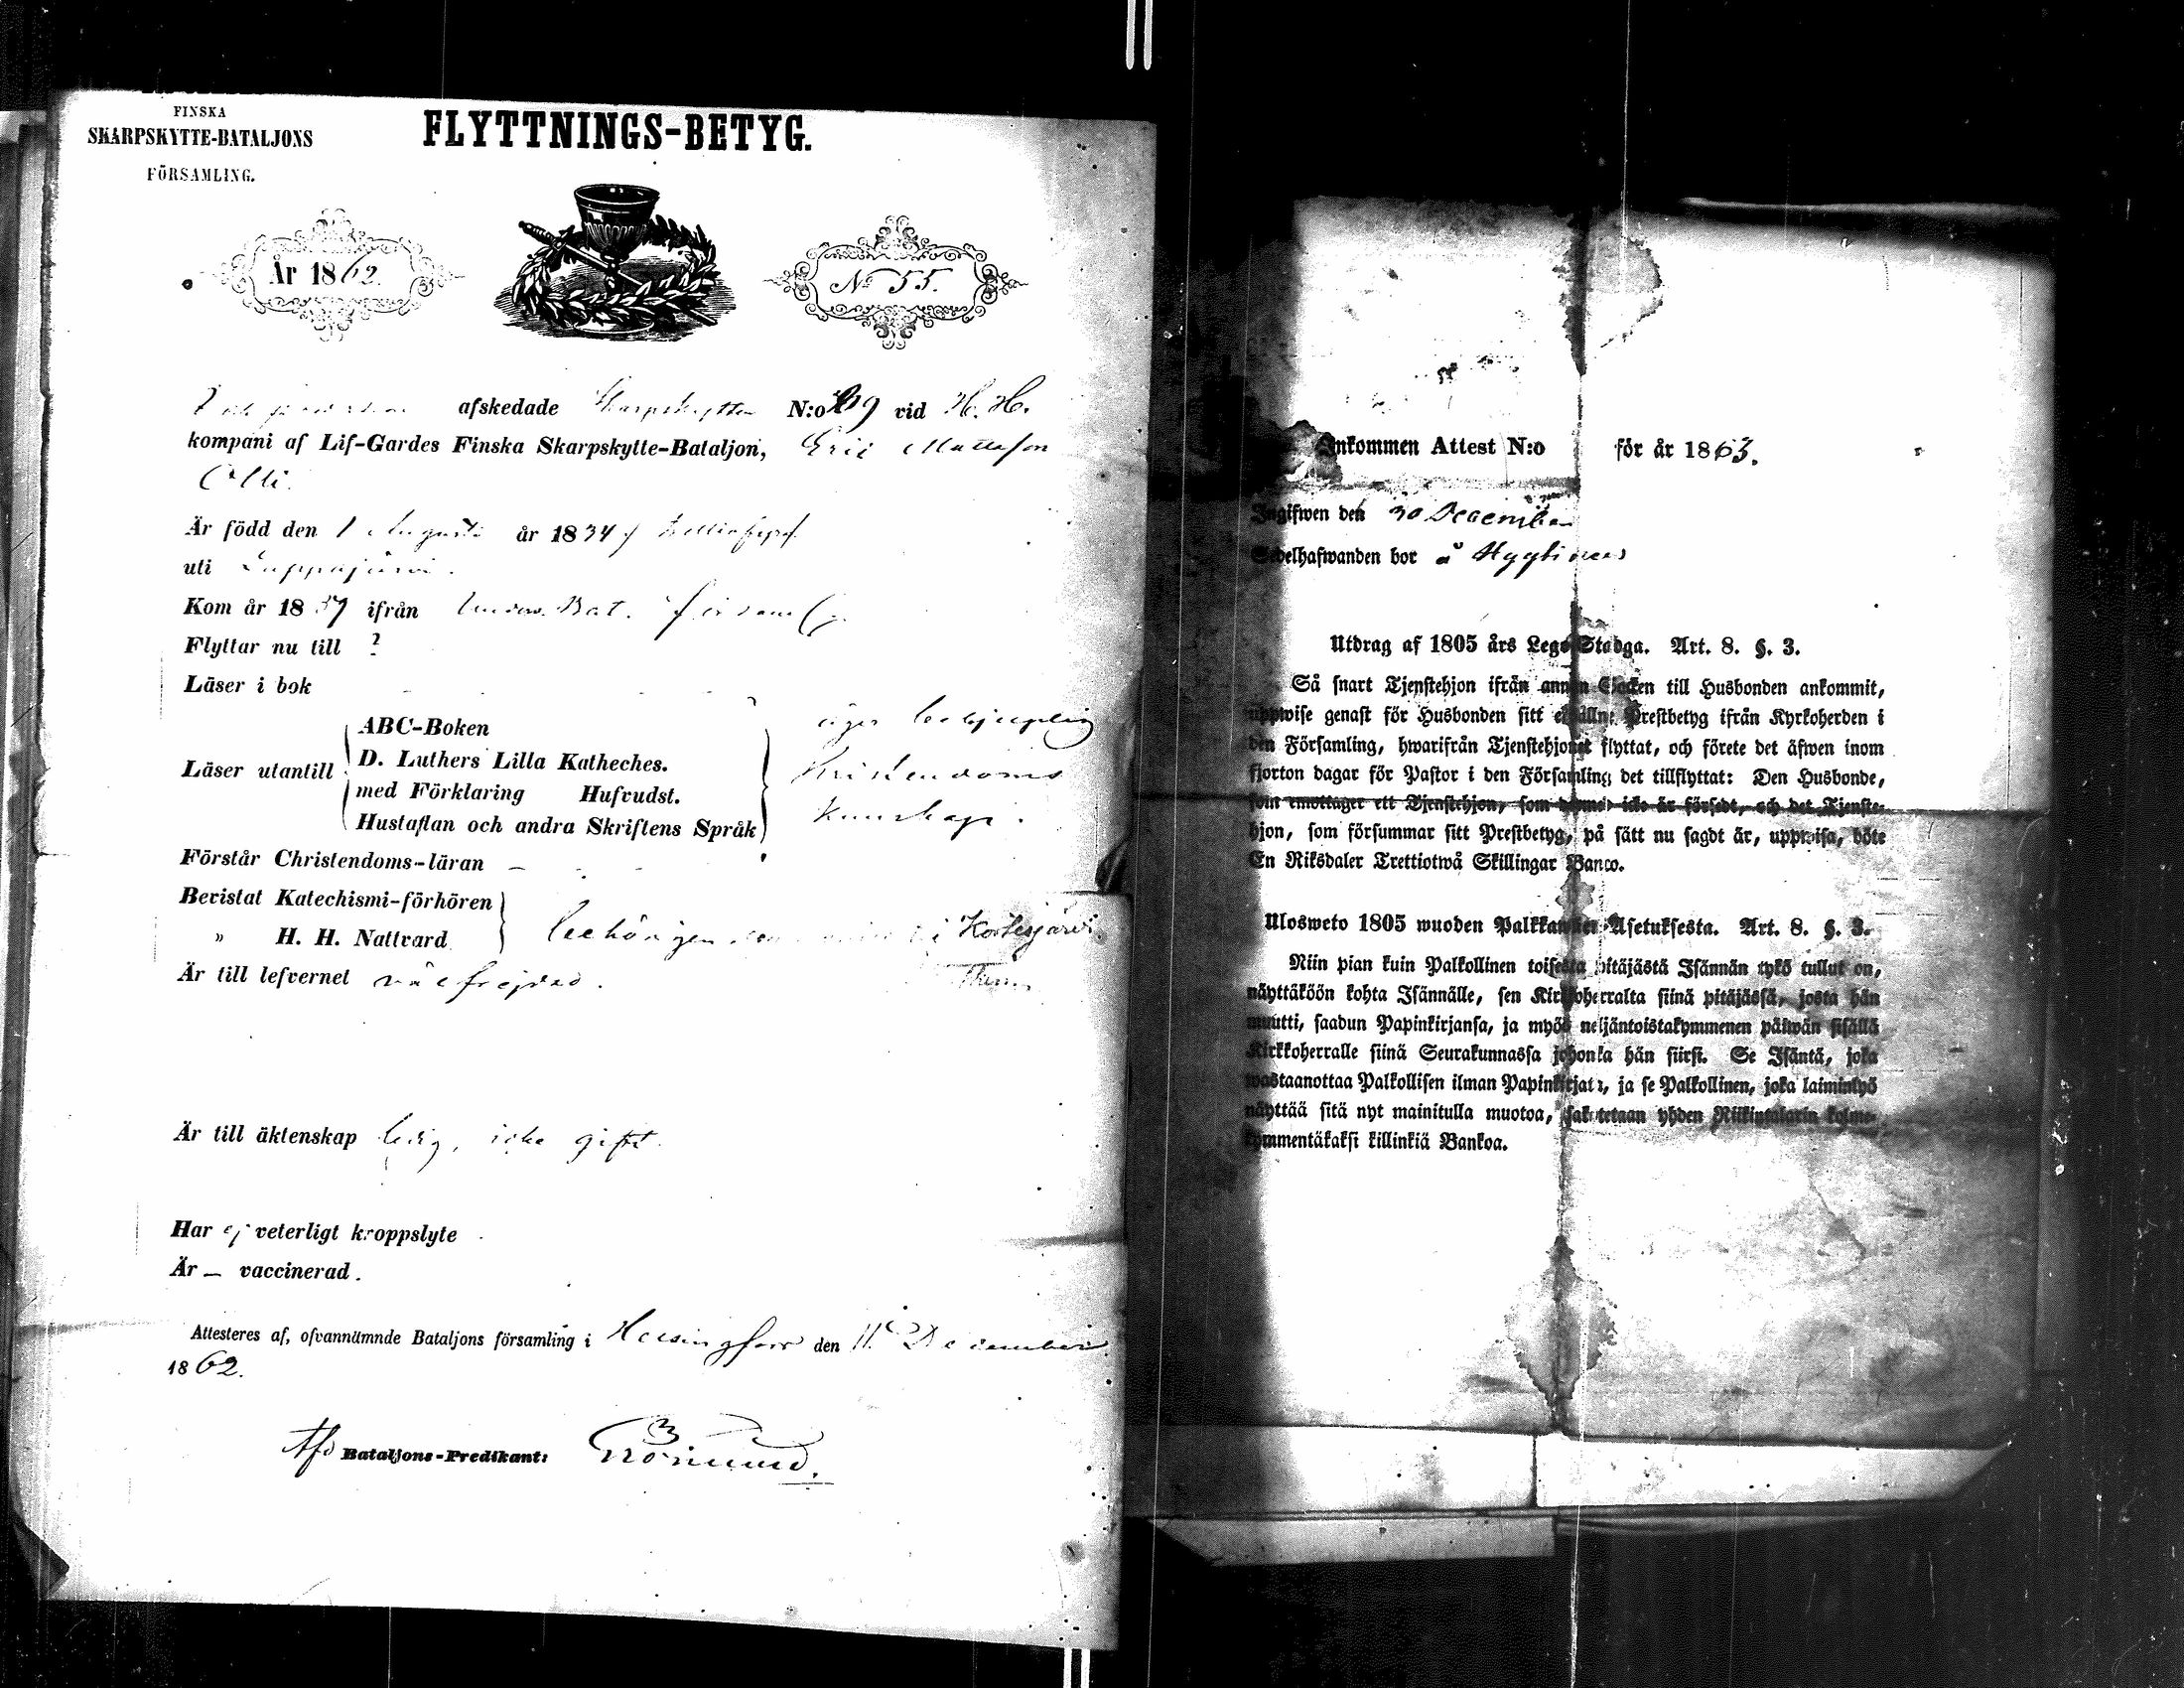 FINSKA
SKARPSKYTTE-BATALJONS
FÖRSAMLING.
FLYTTNINGS-BETYG.
År 1862.
No 55.
afskedade Skarpskytten N:o 69 vid H. H.
kompani af Lif-Gardes Finska Skarpskytte-Bataljon, Eric Mattsson
Är född den 1 Augusti år 1834
uti Lappajärvi.
Kom år 1857 ifrån
Flyttar nu till ?
Läser i bok
Läser utantill
ABC-Boken
D. Luthers Lilla Katheches.
med Förklaring Hufvudst.
Hustaflan och andra Skriftens Språk
äger
Kristendoms
kunskap.
Förstår Christendoms-läran —
Bevistat Katechismi-förhören
„ H. H. Nattvard
behörigen i Kortesjärvi
Är till lefvernet välfrejdad.
Är till äktenskap ledig, icke gift.
Har ej veterligt kroppslyte
Är — vaccinerad.
Attesteres af, ofvannämnde Bataljons församling i Helsingfors den 11 December
1862.
Bataljons-Predikant:
Ankommen Attest N:o för år 1863.
Ingifwen den 30 December
Sedelhafwanden bor å
Utdrag af 1805 års Lego-Stadga. Art. 8. §. 3.
Så snart Tjenstehjon ifrån annan Socken till Husbonden ankommit,
uppwise genast för Husbonden sitt erhållne Prestbetyg ifrån Kyrkoherden i
den Församling, hwarifrån Tjenstehjonet flyttat, och förete det äfwen inom
fjorton dagar för Pastor i den Församling det tillflyttat: Den Husbonde,
som emottager ett Tjenstehjon, som dermed icke är försedt, och det Tjenste-
hjon, som försummar sitt Prestbetyg, på sätt nu sagdt är, uppwisa, böte
En Riksdaler Trettiotwå Skillingar Banco.
Ulosweto 1805 wuoden Palkkawäen Asetuksesta. Art. 8. §. 3.
Niin pian kuin Palkollinen toisesta pitäjästä Isännän tykö tullut on,
näyttäköön kohta Isännälle, sen Kirkkoherralta siinä pitäjässä, josta hän
muutti, saadun Papinkirjansa, ja myös neljäntoistakymmenen päiwän sisällä
Kirkkoherralle siinä Seurakunnassa johonka hän siirsi. Se Isäntä, joka
wastaanottaa Palkollisen ilman Papinkirjata, ja se Palkollinen, joka laiminlyö
näyttää sitä nyt mainitulla muotoa, sakotetaan yhden Riikintalarin kolme-
kymmentäkaksi killinkiä Bankoa.